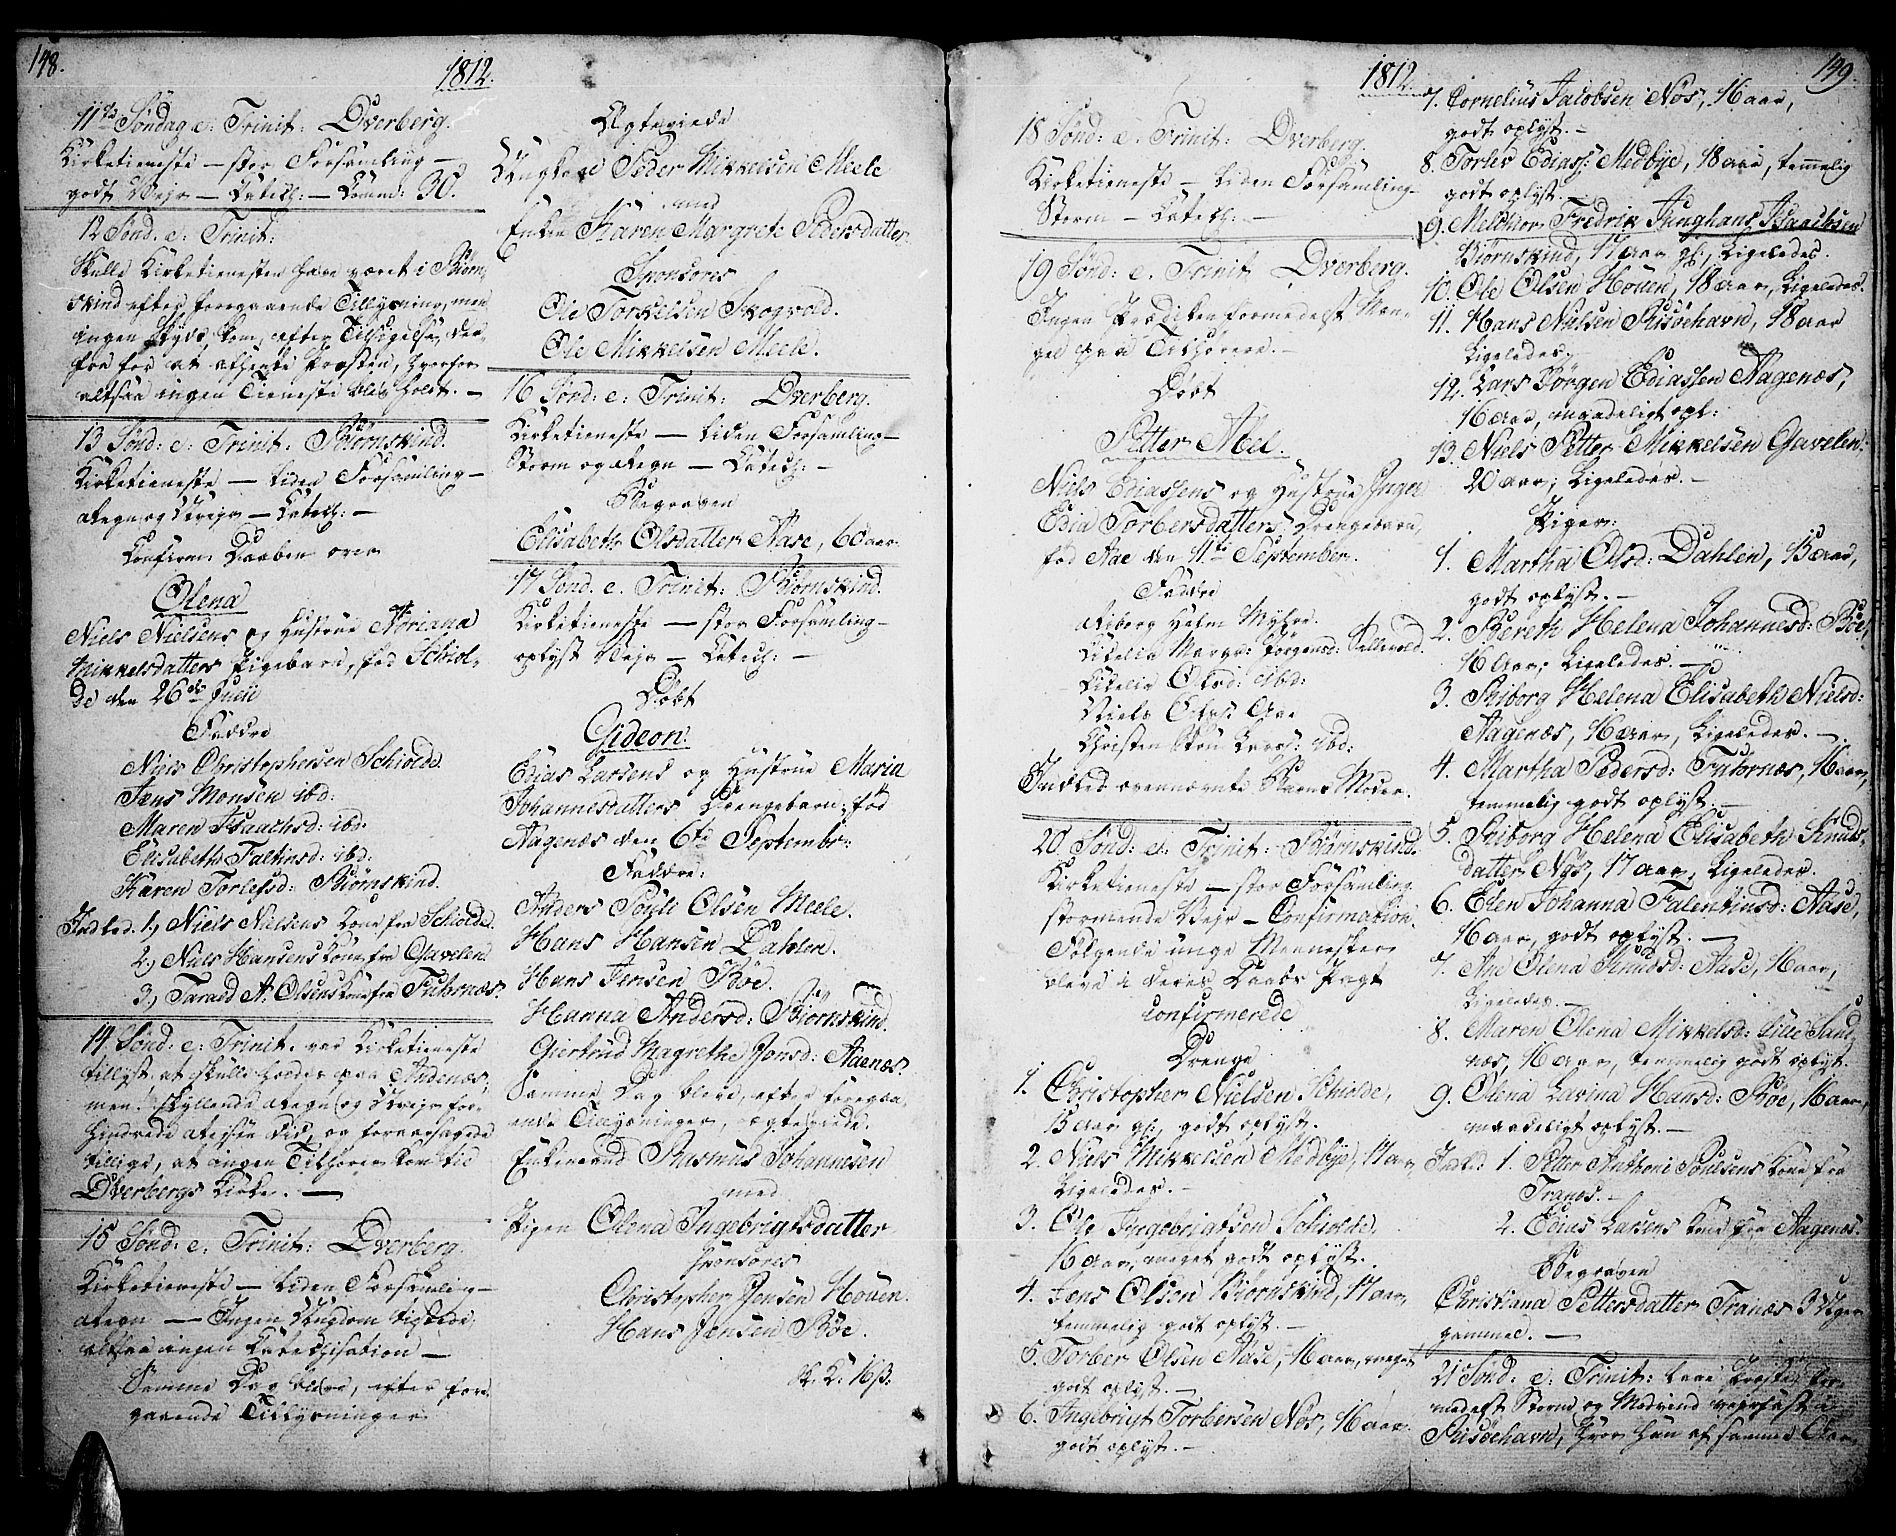 148.
1812.
11te Søndag e: Trinit: Dverberg.
Kirketieneste — stor Forsamling —
godt Vejr — Catech: — Comm: 30.
12 Sønd: e: Trinit:
Skulle Kirketienesten have været i Biørn-
skind efter foregaaende Tillysning, men
ingen Skyds kom, efter Tilsigelse, der-
fra for at afhente Præsten, hvorfor
altsaa ingen Tieneste blev holdt. —
13 Sønd: e: Trinit: Biørnskind.
Kirketieneste — liden Forsamling —
Regn og Uvejr — Catech: —
Confirm: Daaben over
Olena
Niels Nielsens og Hustrue Noriana
Mikkelsdatters Pigebarn, fød Schiol-
de den 26de Juli
Faddre
Niels Christophersen Schiolde.
Jens Monsen ibd:
Maren Isaachsd: ibd:
Elisabeth Faltinsd: ibd:
Karen Torlefsd: Biørnskind.
Indled. 1, Niels Nielsens Kone fra Schiolde.
2, Niels Hansens Kone fra Gavelen.
3, Tarald A. Olsens Kone fra Fubornæs.
14 Sønd: e: Trinit: var Kirketieneste
tillyst at skulle holdes paa Andenæs,
men skyllende Regn og Uvejr for-
hindrede Reisen did, og foraarsagede
tillige, at ingen Tilhører kom til
Dverbergs Kirke. —
15 Sønd: e: Trinit: Dverberg.
Kirketieneste — liden Forsamling —
Regn — Ingen Ungdom tilstede,
altsaa ingen Catechisation —
Samme Dag bleve, efter fore-
gaaende Tillysninger
Ægteviede
Ungkarl Peder Mikkelsen Meele
med
Enken Karen Margrete Pedersdatter
Sponsores
Ole Torkelsen Skogvold.
Ole Mikkelsen Meele.
16 Sønd: e: Trinit: Dverberg.
Kirketieneste — liden Forsamling —
Storm og Regn — Catech: —
Begraven
Elisabeth Olsdatter Aase, 60 aar.
17 Sønd. e. Trinit: Biørnskind.
Kirketieneste — stor Forsamling —
oplyst Vejr — Catech: —
Døbt
Gideon.
Edias Larsens og Hustrue Maria
Johannesdatters Drengebarn, fød
Aagenæs den 6te Septembr:
Faddre:
Anders Pouli Olsen Meele.
Hans Hansen Dahlen.
Hans Jensen Bøe.
Hanna Andersd: Biørnskind.
Giertrud Magrethe Jensd: Aaenæs.
Samme Dag bleve, efter foregaa-
ende Tillysninger, ægteviede.
Enkemand Rasmus Johannesen
med
Pigen Olena Ingebrigtsdatter
Sponsores
Christopher Jensen Houen.
Hans Jensen Bøe.
1812.
149.
18 Sønd: e. Trinit: Dverberg.
Kirketieneste — liden Forsamling —
Storm — Catech: —
19 Sønd: e. Trinit Dverberg.
Ingen Prædiken formedelst Man-
gel paa Tilhørere. —
Døbt
Petter Abel.
Niels Ediassens og Hustrue Inger
Edia Torbersdatters Drengebarn,
fød Aae den 11te September.
Faddre
Riborg Helm Myhre.
Margr: Jørgensd: Sellevold.
Olsd: ibd:
Niels Aae
Christen ibd:
Indled ovennævnte Barns Moder.
20 Sønd: e: Trinit: Biørnskind.
Kirketieneste — stor Forsamling
stormende Vejr — Confirmation.
Følgende unge Mennesker
bleve i deres Daabs Pagt
confirmerede
Drenge
1. Christopher Nielsen Schiolde,
15 Aar gl, godt oplyst.
2. Niels Mikkelsen Medbye, 17 aar,
Ligeledes. —
3. Ole Ingebrigtsen Schiolde,
16 aar, meget godt oplyst.
4. Jens Olsen Biørnskind, 17 aar,
temmelig godt oplyst. —
5. Torber Olsen Aase, 16 aar, meget
godt oplyst. —
6. Ingebrigt Torbersen Nøs, 16 aar
godt oplyst. —
7. Cornelius Jacobsen Nøs, 16 aar,
godt oplyst. —
8. Torlef Ediass: Medbye, 18 aar, temmelig
godt oplyst. —
9. Melchior Fredrik Junghans Isaachsen
Biørnskind, 17 aar gl, Ligeledes.
10. Ole Olsen Houen, 18 aar, Ligeledes.
11. Hans Nielsen Risøehavn, 18 aar
Ligeledes.
12. Lars Jørgen Ediassen Aagenæs,
16 aar, maadeligt opl:
13. Niels Petter Mikkelsen Gavelen:
20 aar, Ligeledes. —
Piger:
1. Martha Olsd: Dahlen, 15 aar,
godt oplyst. —
2. Bereth Helena Johannesd: Bøe,
16 aar, Ligeledes. —
3. Riborg Helena Elisabeth Nielsd:
Aagenæs, 16 aar, Ligeledes. —
4. Martha Pedersd: Fubornæs, 16 aar,
temmelig godt oplyst. —
5. Riborg Helena Elisabeth Knuds-
datter Nøs, 17 aar, Ligeledes.
6. Elen Johanna Falentinsd: Aase,
16 aar, godt oplyst. —
7. Ane Olena Knudsd: Aase, 16 aar,
Ligeledes. —
8. Maren Olena Mikkelsd: Lille Sand-
næs, 16 aar, temmelig godt oplyst.
9. Olena Lavina Hansd: Bøe, 16 aar,
maadeligt oplyst. —
Indled: 1. Petter Anthoni Poulsens Kone fra
Tranæs. —
2. Edias Larsens Kone fra Aagenæs.
Begraven
Christiana Pettersdatter Tranæs 3 Uger
gammel. —
21 Sønd: e: Trinit: laae Præsten for-
medelst Storm og Modvind vejrfast i
Risøehavn, hvor han af samme Aar-